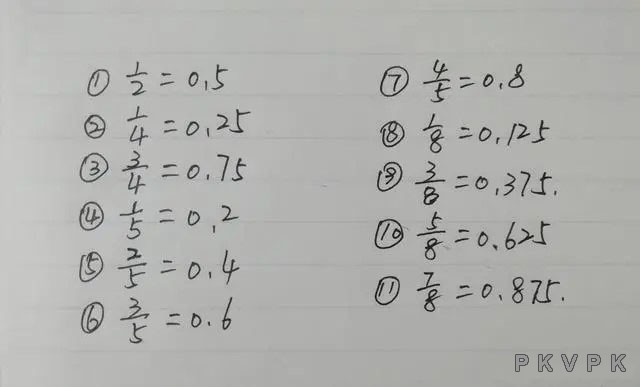 ① 1/2 = 0.5
② 1/4 = 0.25
③ 3/4 = 0.75
④ 1/5 = 0.2
⑤ 2/5 = 0.4
⑥ 3/5 = 0.6
⑦ 4/5 = 0.8
⑧ 1/8 = 0.125
⑨ 3/8 = 0.375.
⑩ 5/8 = 0.625
⑪ 7/8 = 0.875.
PKVPK